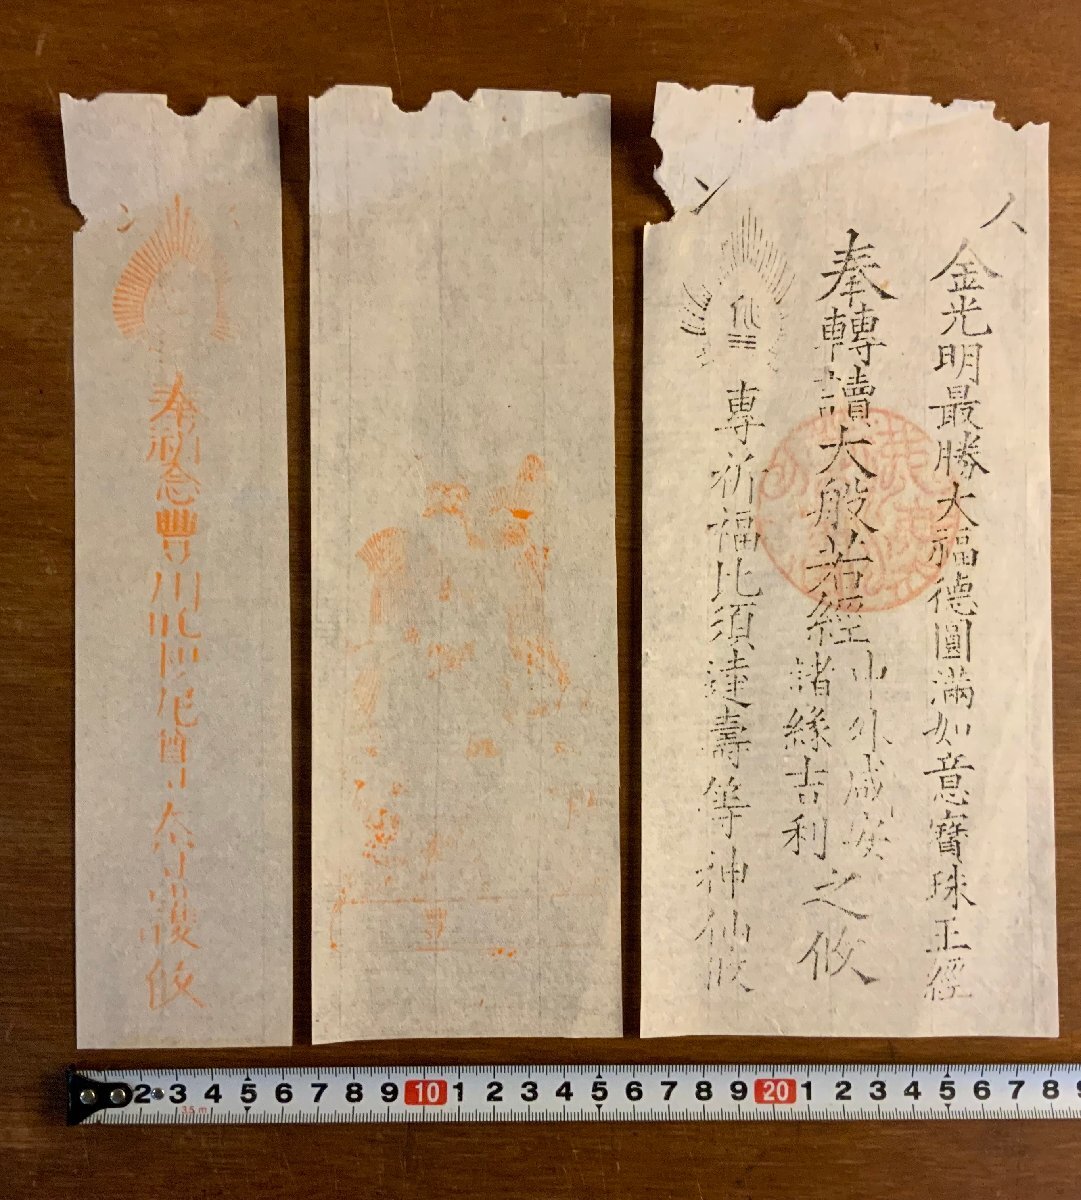 金光明最勝大福德圓滿如意寶珠王經
奉轉讀大般若經
中外咸安
諸緣吉利
之攸
專祈福比須達壽等神仙攸
奉祈念豐川吒枳尼尊天守護攸
豐
2 3 4 5 6 7 8 9 10 1 2 3 4 5 6 7 8 9 20 1 2 3 4 5 6 7 8 9
3.5 m